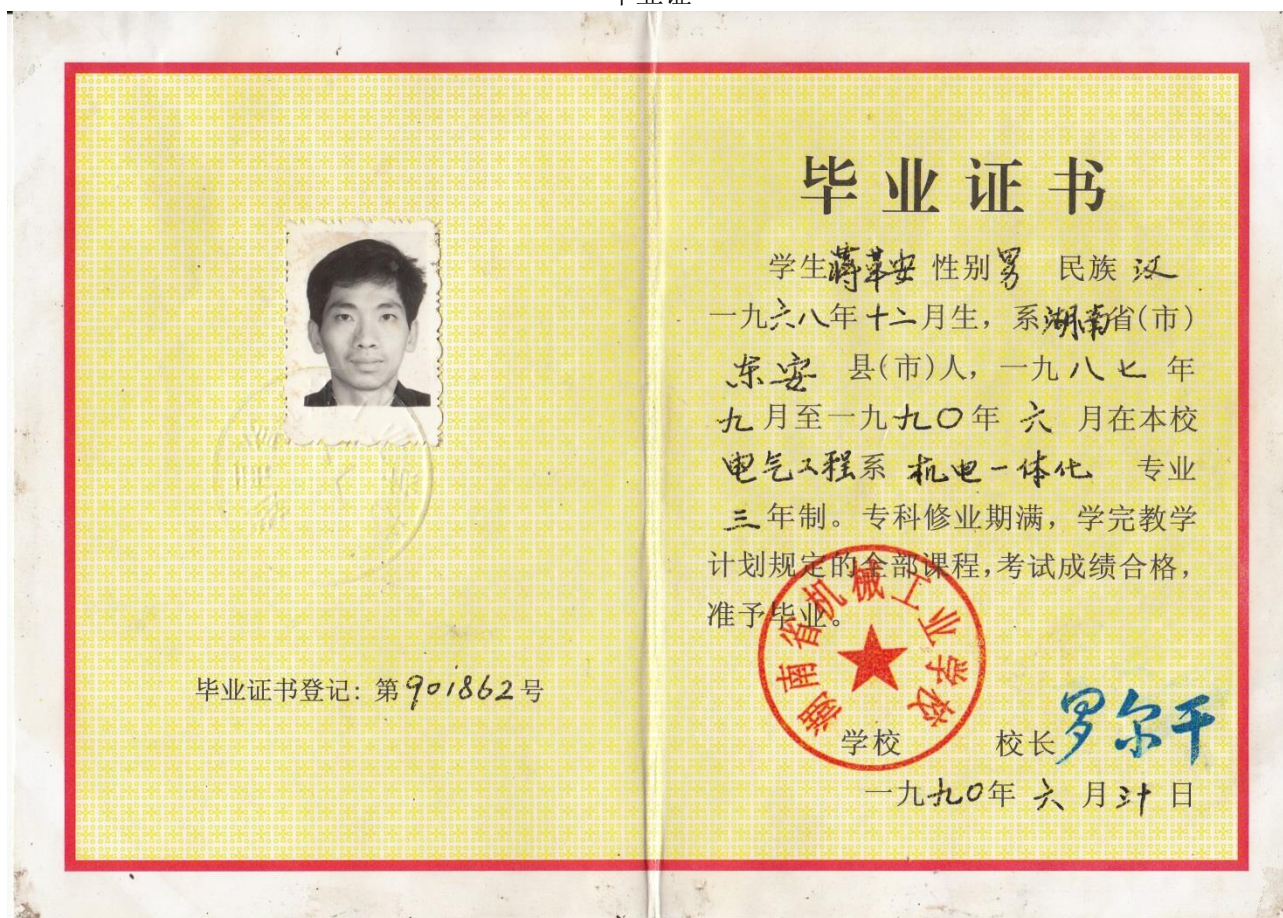 毕业证
毕业证书
学生蒋革安 性别男 民族 汉
一九六八年十二月生，系湖南省(市)
东安 县(市)人，一九八七 年
九月至一九九〇年 六 月在本校
电气工程系 机电一体化 专业
三年制。专科修业期满，学完教学
计划规定的全部课程，考试成绩合格，
准予毕业。
湖南省机械工业学校
学校 校长罗尔干
一九九〇年 六 月三十日
毕业证书登记：第901862号